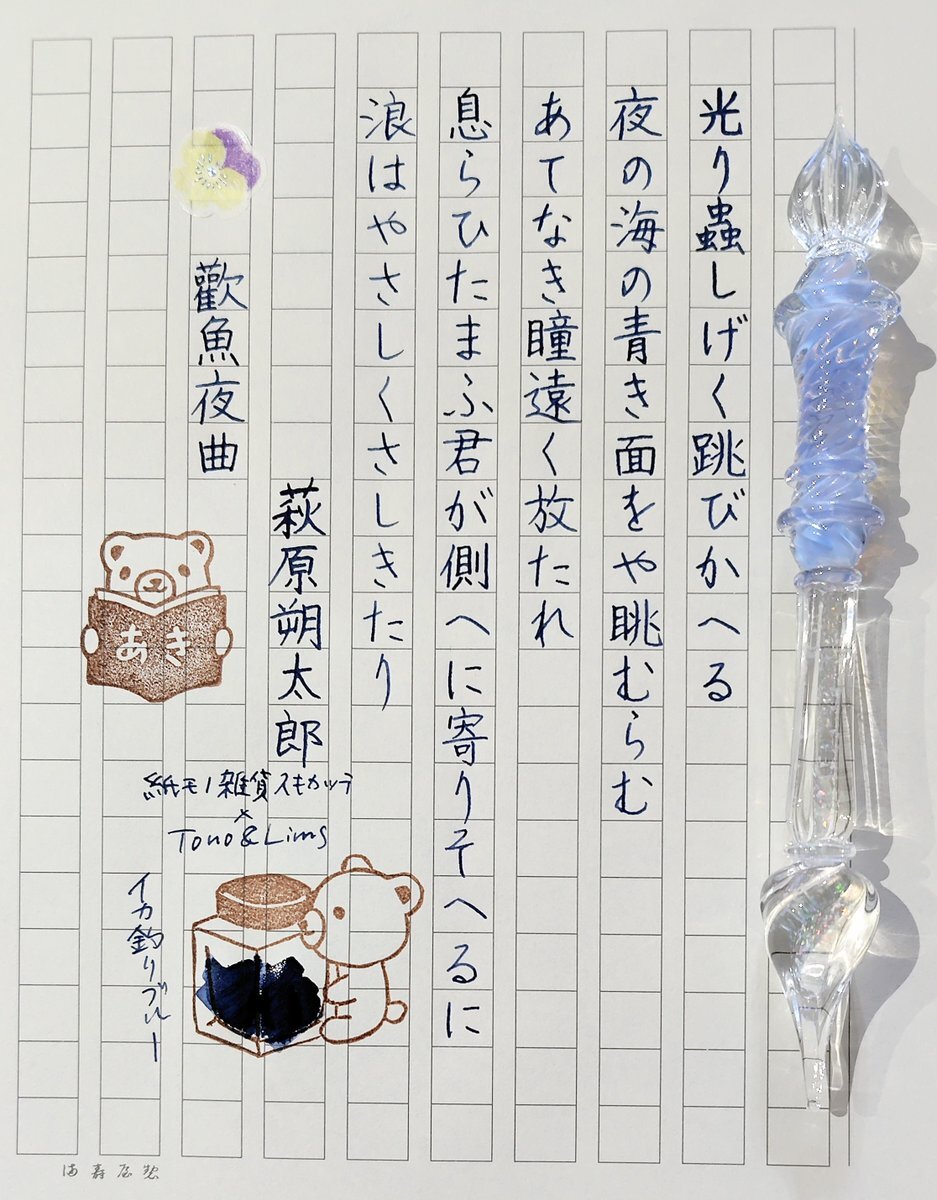 光り蟲しげく跳びかへる
夜の海の青き面をや眺むらむ
あてなき瞳遠く放たれ
息らひたまふ君が側へに寄りそへるに
浪はやさしくさしきたり
萩原朔太郎
歡魚夜曲
あき
紙モノ雑貨スキカッテ
×
Tono&Lims
イカ釣りブルー